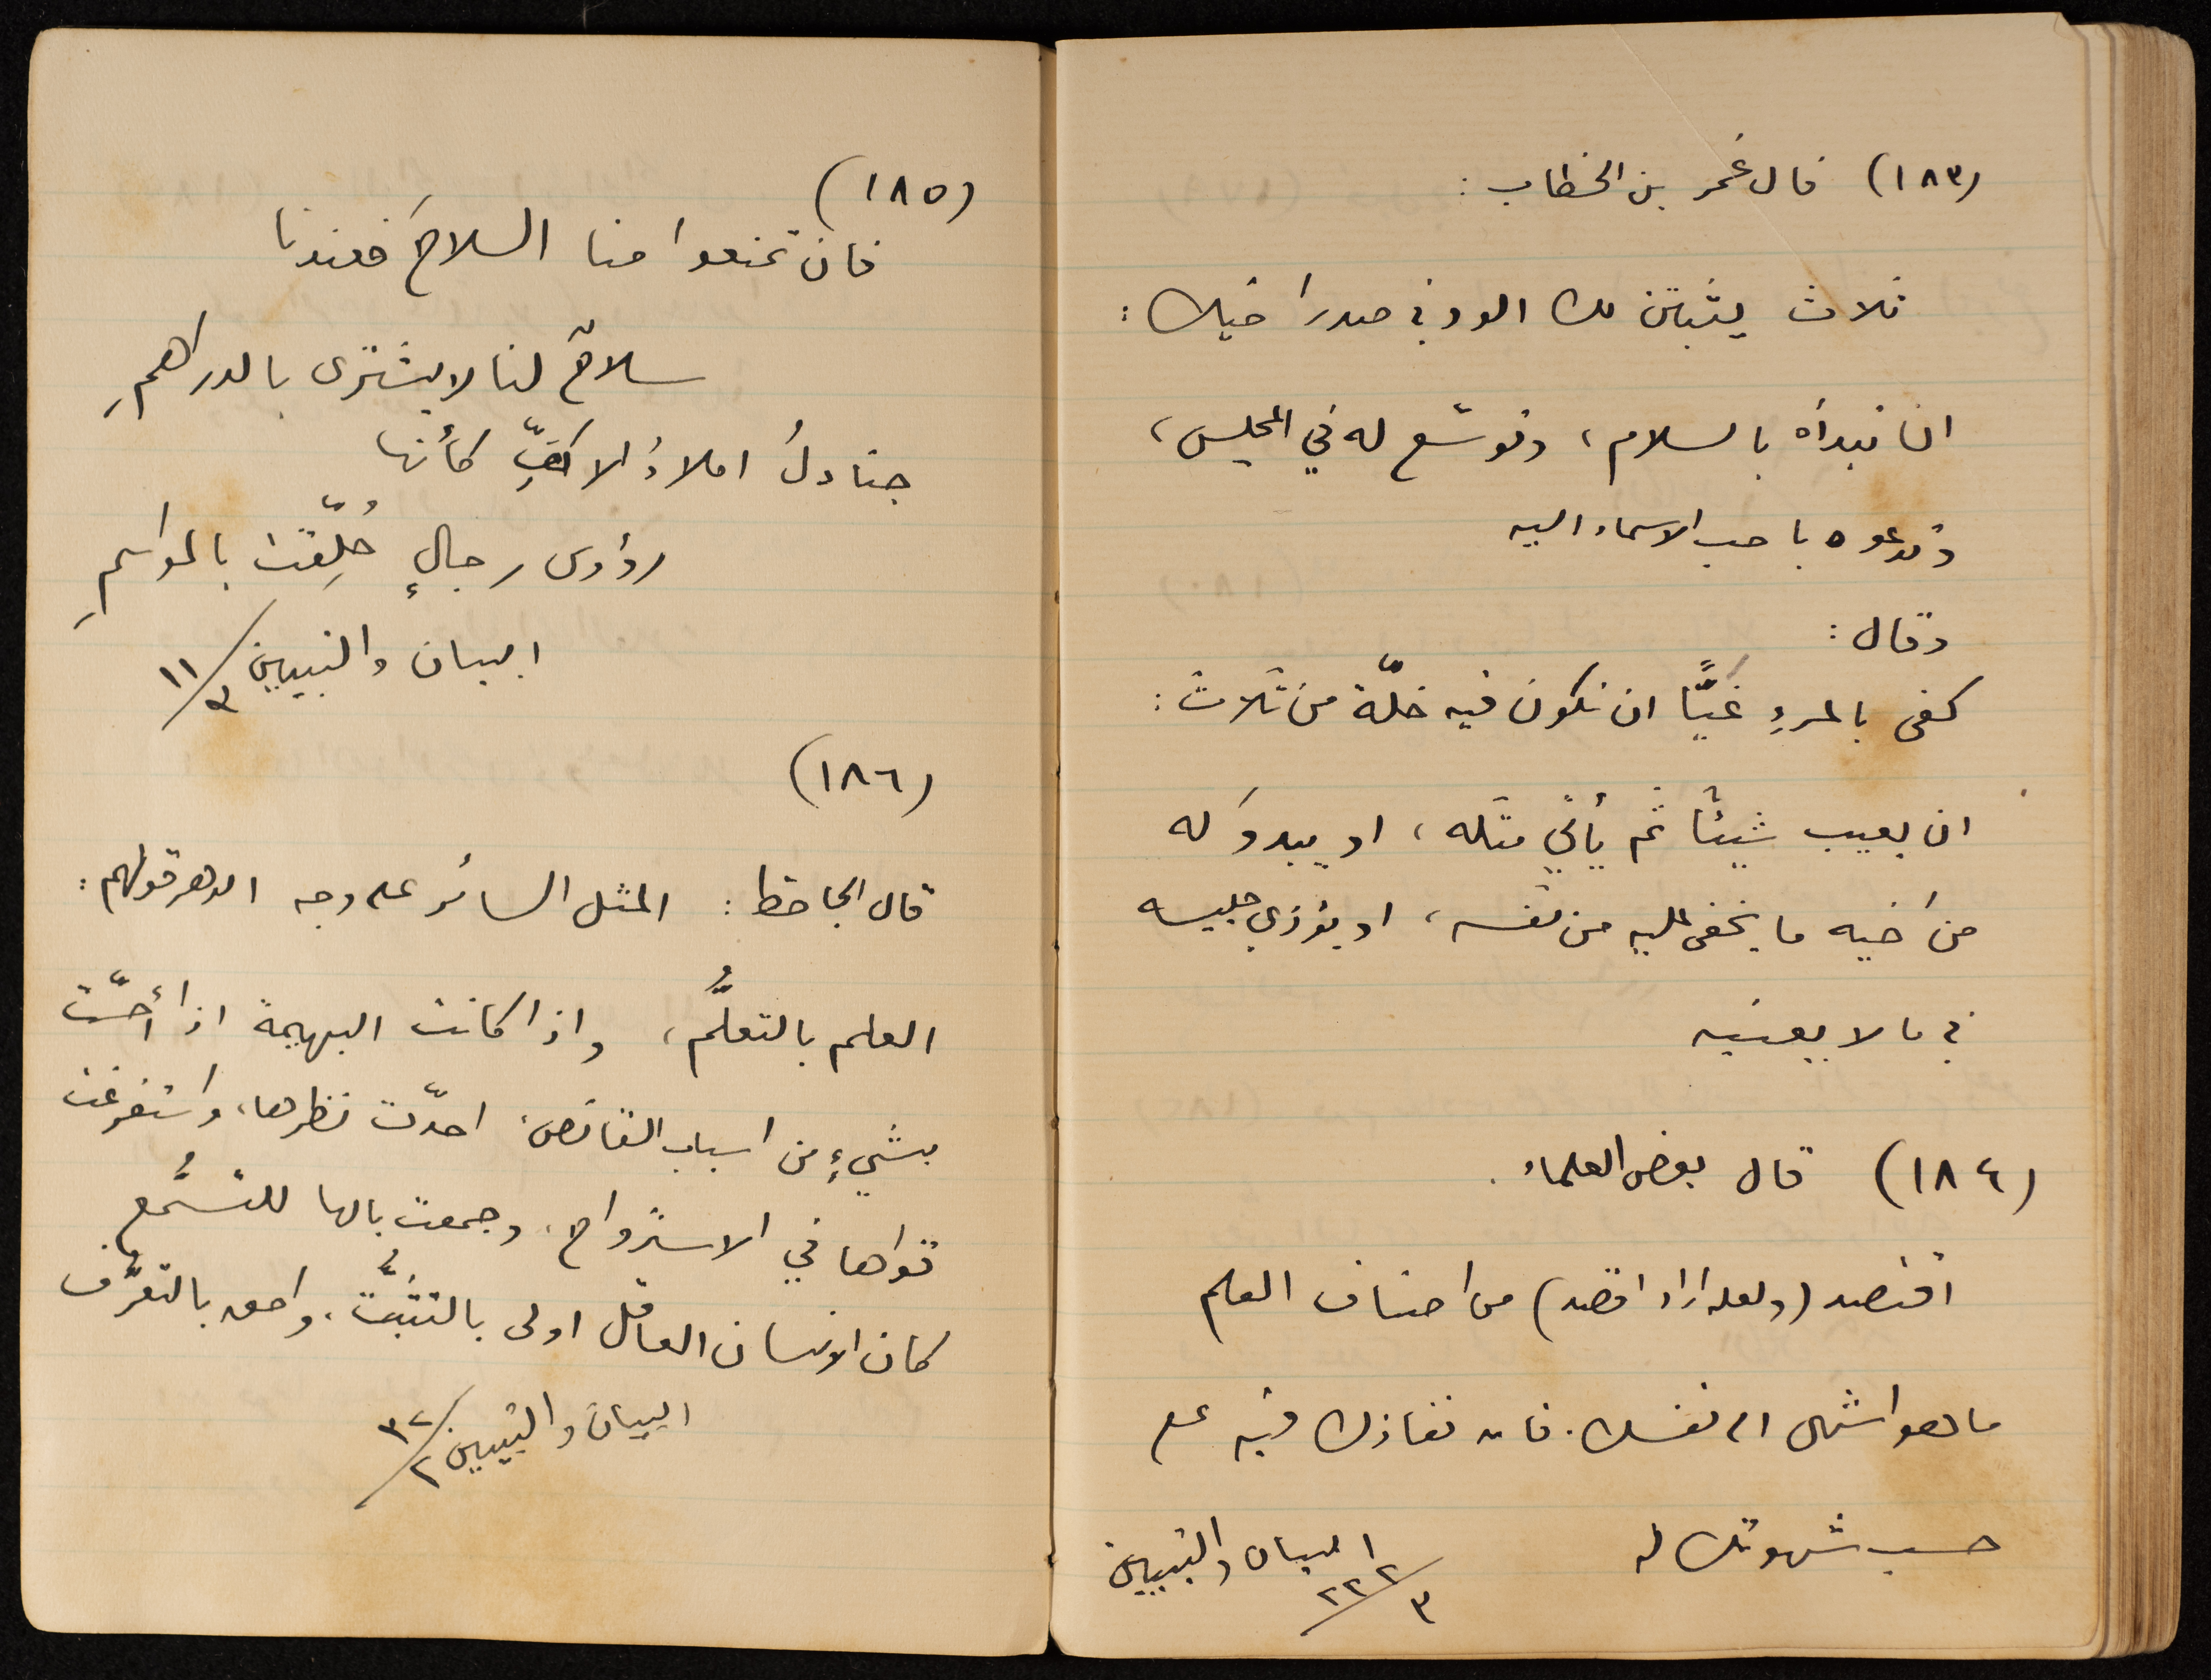 (١٨٣) قال عُمر بن الخطاب :
ثلاث يثبتن لك الود في صدر اخيك :
ان تبدأه بالسلام ، وتوسّع له في المجلس ،
وتدعوه باحب الاسماء اليه
وقال :
كفى بالمرءِ غيًّا ان تكون فيه خلّة من ثلاث :
ان يعيب شيئًا ثم يأتي مثله ، او يبدوَ له
من اخيه ما يخفى عليه من نفسه ، او يؤذي جليسه
في ما لا يعنيه
(١٨٤) قال بعض العلماء .
اقتصد (ولعله اراد اقصد) من اصناف العلم
ما هو اشهى الى نفسك . فان نفاذك فيه على
حسب شهوتك له
البيان والتبيين ٢٢٢/٣
(١٨٥)
فان تمنعوا منا السلاحَ فعندنا
سلاحٌ لنا لا يشترى بالدراهمِ
جنادلُ املاءُ الاكفِّ كأنها
رؤوس رجالٍ حُلِّقت بالمواسمِ
البيان والتبيين ١١/٣
(١٨٦)
قال الجاحظ : المثل السائر على وجه الدهر قولهم :
العلم بالتعلُّم ، واذا كانت البهيمة اذا أحسّت
بشيءٍ من اسباب القانص ، احدّت نظرها ، واستفرغت
قواها في الاسترواح ، وجمعت بالها للتسمُّع
كان الانسان العاقل اولى بالتثبُّت ، واحق بالتعرُّف
البيان والتبيين ٣٢/٢